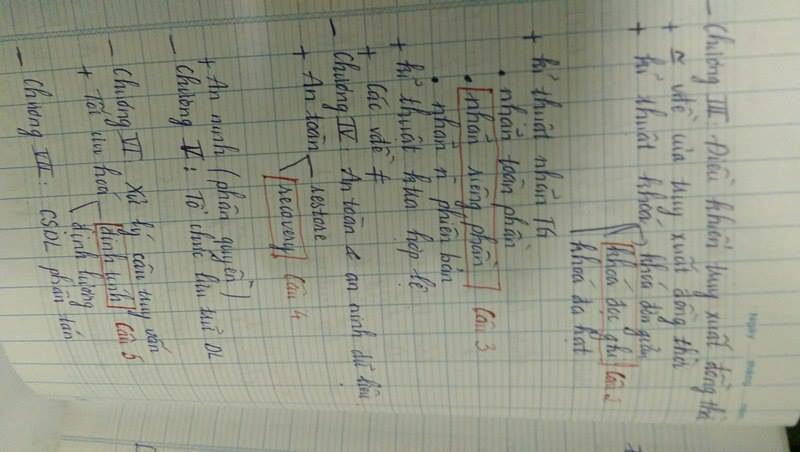 Ngày tháng năm
- Chương III: Điều khiển truy xuất đồng thời
+ ≃ vđề của truy xuất đồng thời
+ kĩ thuật khoá → khoá đơn giản
khoá đọc ghi Câu 2
khoá đa hạt
+ kĩ thuật nhãn TG
• nhãn toàn phần
• nhãn riêng phần Câu 3
• nhãn n phiên bản
+ kĩ thuật ktra hợp lệ
+ Các vđề ≠
- Chương IV: An toàn & an ninh dữ liệu
+ An toàn - restore
recovery Câu 4
+ An ninh (phân quyền)
- Chương V: Tổ chức lưu trữ DL
- Chương VI Xử lý câu truy vấn
+ Tối ưu hoá - định tính Câu 5
định lượng
- Chương VII: CSDL phân tán